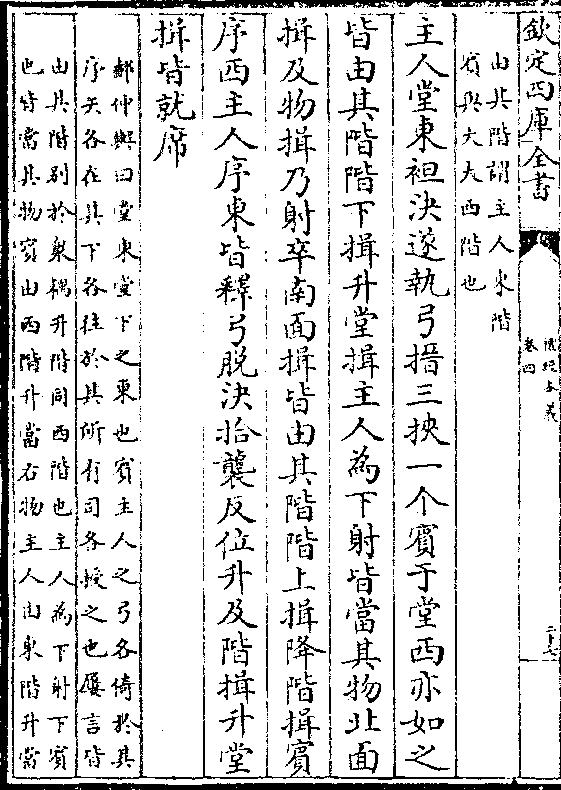 欽定四庫全書
儀禮本義
卷四
二十七
由其階謂主人東階
賓與大夫西階也
主人堂東袒決遂執弓搢三挾一个賓于堂西亦如之
皆由其階階下揖升堂揖主人為下射皆當其物北面
揖及物揖乃射卒南面揖皆由其階階上揖降階揖賓
序西主人序東皆釋弓脱決拾襲反位升及階揖升堂
揖皆就席
郝仲輿曰堂東堂下之東也賓主人之弓各倚於其
序矢各在其下各往於其所有司各授之也屢言皆
由其階别於衆耦升階同西階也主人為下射下賓
也皆當其物賓由西階升當右物主人由東階升當